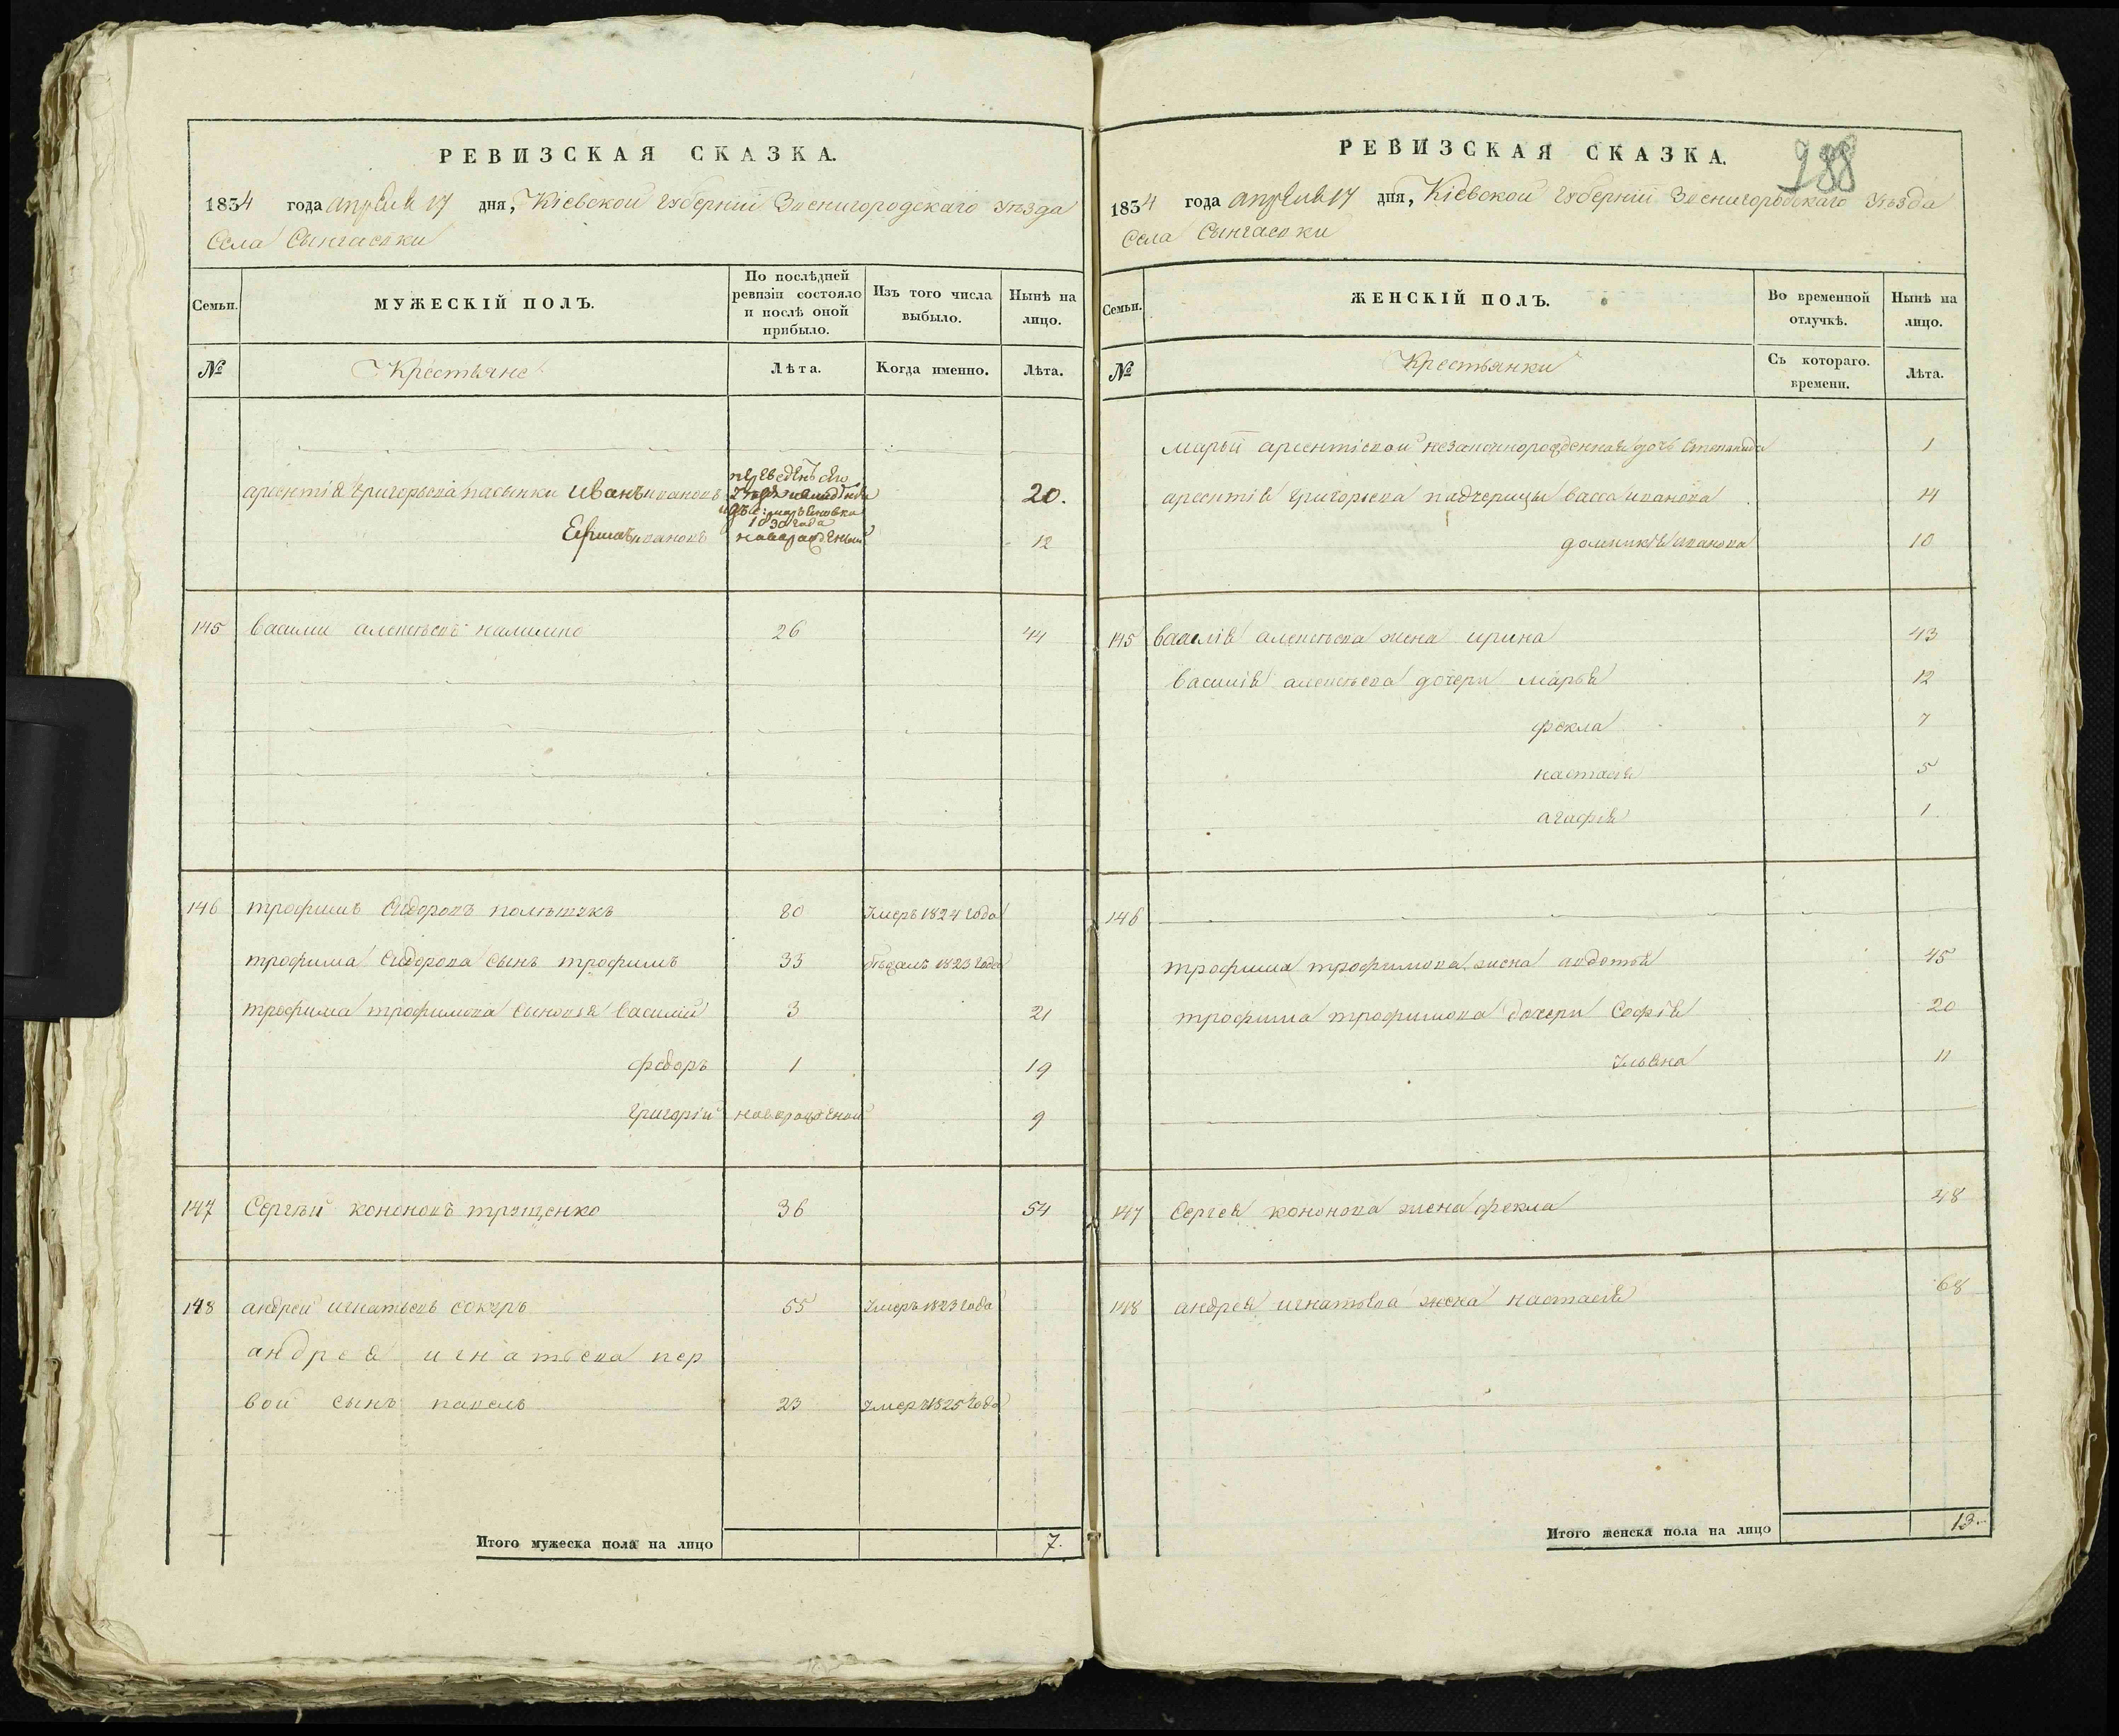 РЕВИЗСКАЯ СКАЗКА.
1834 года апреля 17 дня, Кіевской губерніи Звенигородскаго уѣзда
Села
МУЖЕСКІЙ ПОЛЪ.
Семьи.
По послѣдней ревизіи состояло и послѣ оной прибыло.
Изъ того числа выбыло.
Нынѣ на лицо.
№
Крестьяне
Лѣта.
Когда именно.
Лѣта.
арсентія григорьева пасынки Иванъ ивановъ переведенъ 1830 года 20.
ивановъ новорожденный 12
145 василии алексѣевъ 26 44
146 трофимъ Сидоровъ 80 умеръ 1824 года
трофима Сидорова сынъ трофимъ 33 1823 года
трофима трофимова сыновья василий 3 21
федоръ 1 19
григорій новорожденой 9
147 Сергѣй кононовъ трущенко 36 54
148 андрей игнатьевъ сокуръ 55 умеръ 1823 года
андрея игнатьева пер
вой сынъ павелъ 23 умеръ 1825 года
Итого мужеска пола на лицо 7.
РЕВИЗСКАЯ СКАЗКА.
288
1834 года апреля 17 дня, Кіевской губерніи Звенигородскаго уѣзда
Села
Семьи.
ЖЕНСКІЙ ПОЛЪ.
Во временной отлучкѣ.
Нынѣ на лицо.
№
Крестьянки
Съ котораго. времени.
Лѣта.
марьи арсентіевой незаконнорожденная дочь Степанида 1
арсентія григорьева падчерицы васса иванова 14
домникія иванова 10
145 василія алексѣева жена ирина 43
василія алексѣева дочери марья 12
фекла 7
настасія 5
агафія 1
146
трофима трофимова жена авдотья 45
трофима трофимова дочери Софія 20
ульяна 11
147 Сергея кононова жена фекла 48
148 андрея игнатьева жена настасія 68
Итого женска пола на лицо 13.